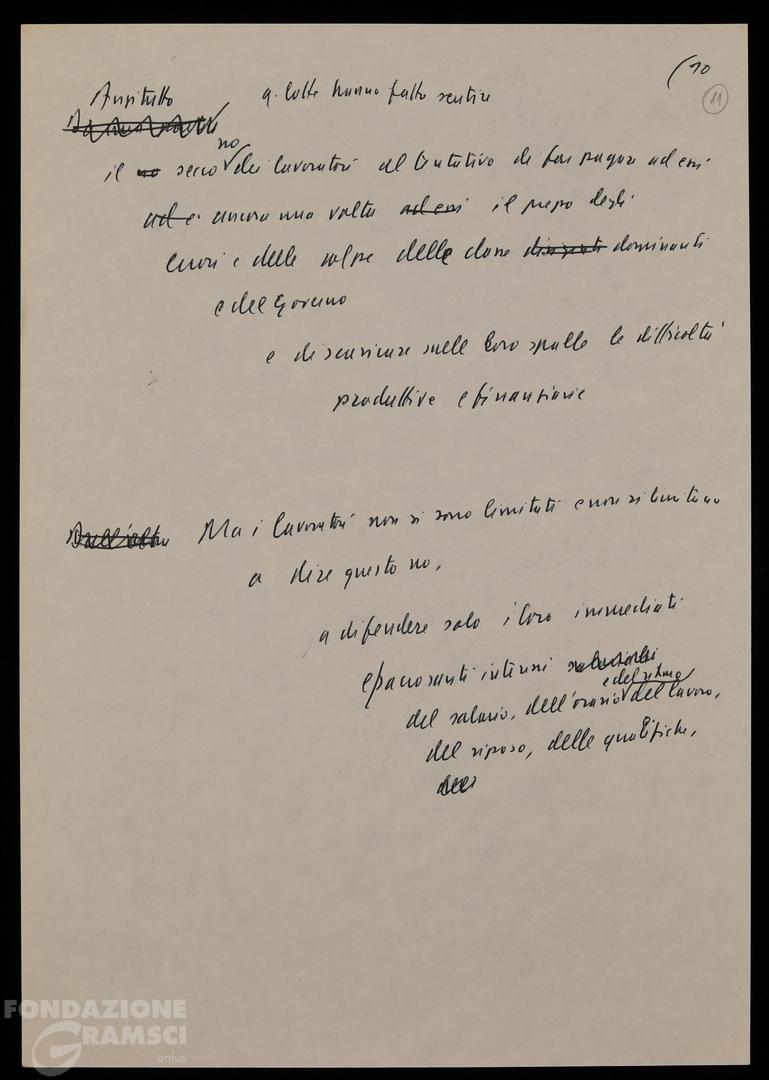 (10
11
Anzitutto q. lotte hanno fatto sentire
il no secco no dei lavoratori al tentativo di far pagare ad essi
ad e ancora una volta ad essi il prezzo degli
errori e delle colpe delle classi dirigenti dominanti
e del Governo
e di scaricare sulle loro spalle le difficoltà
produttive e finanziarie
Dall'altro Ma i lavoratori non si sono limitati e non si limitano
a dire questo no,
a difendere solo i loro immediati
e sacrosanti interessi salariali
del salario, dell'orario e del ritmo del lavoro,
del riposo, delle qualifiche,
FONDAZIONE
GRAMSCI
onlus